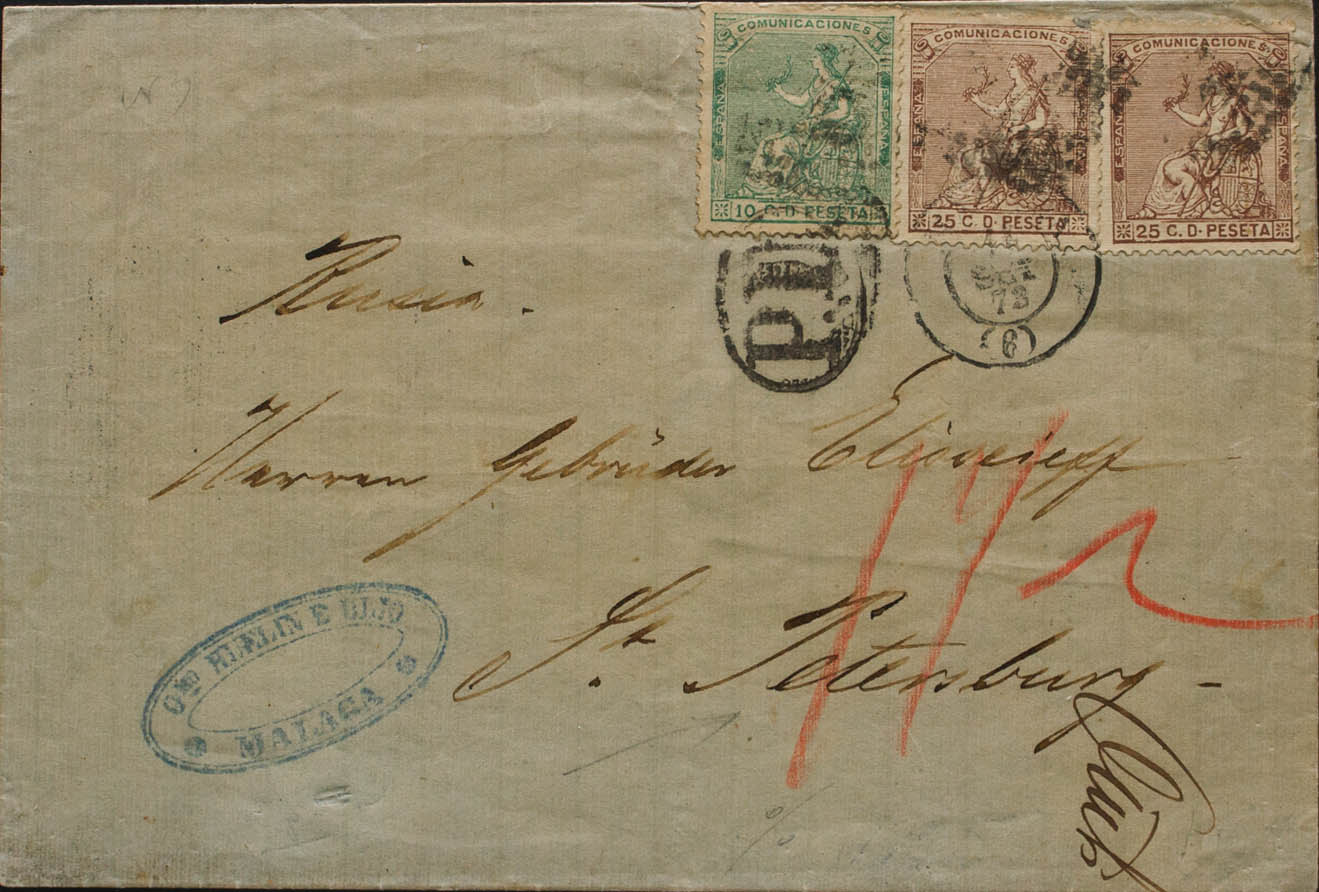 COMUNICACIONES
ESPAÑA ESPAÑA
10 C. D. PESETA
COMUNICACIONES
ESPAÑA ESPAÑA
25 C. D. PESETA
COMUNICACIONES
ESPAÑA ESPAÑA
25 C. D. PESETA
P.D.
73
(6)
Rusia.
Herren Gebrüder Elisseieff
St. Petersburg
HUELIN E HIJO
MALAGA